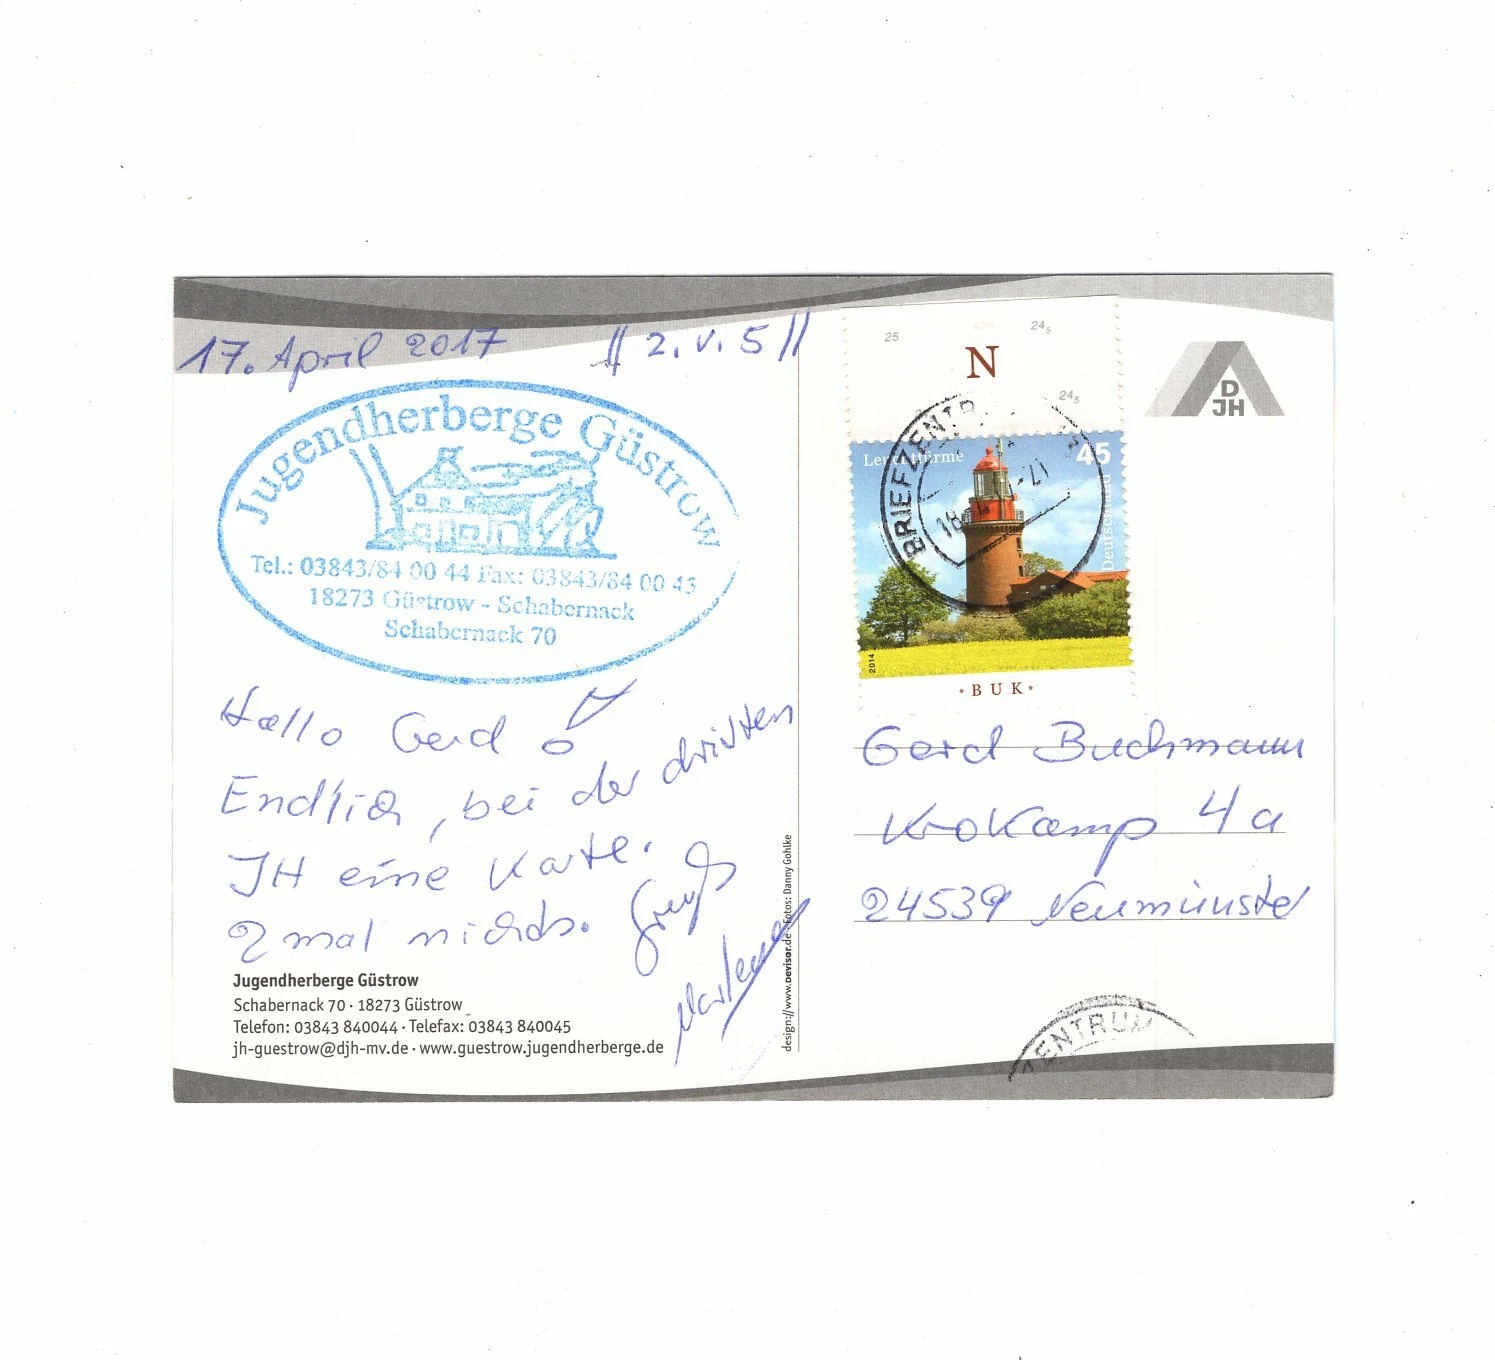 17. April 2017 // 2. v. 5 //
Jugendherberge Güstrow
Tel.: 03843/84 00 44 Fax: 03843/84 00 45
18273 Güstrow - Schabernack
Schabernack 70
Hallo Gerd !
Endlich, bei der dritten
JH eine Karte.
2 mal nichts. Gruß
Jugendherberge Güstrow
Schabernack 70 · 18273 Güstrow
Telefon: 03843 840044 · Telefax: 03843 840045
jh-guestrow@djh-mv.de · www.guestrow.jugendherberge.de
design://www.DEVISOR.de · Fotos: Danny Gohlke
25 24s
N
24s
BRIEFZENTR
18
Leuchttürme 45
Deutschland
2014
* BUK *
D
JH
Gerd Buchmann
Krokamp 4a
24539 Neumünster
ZENTRUM